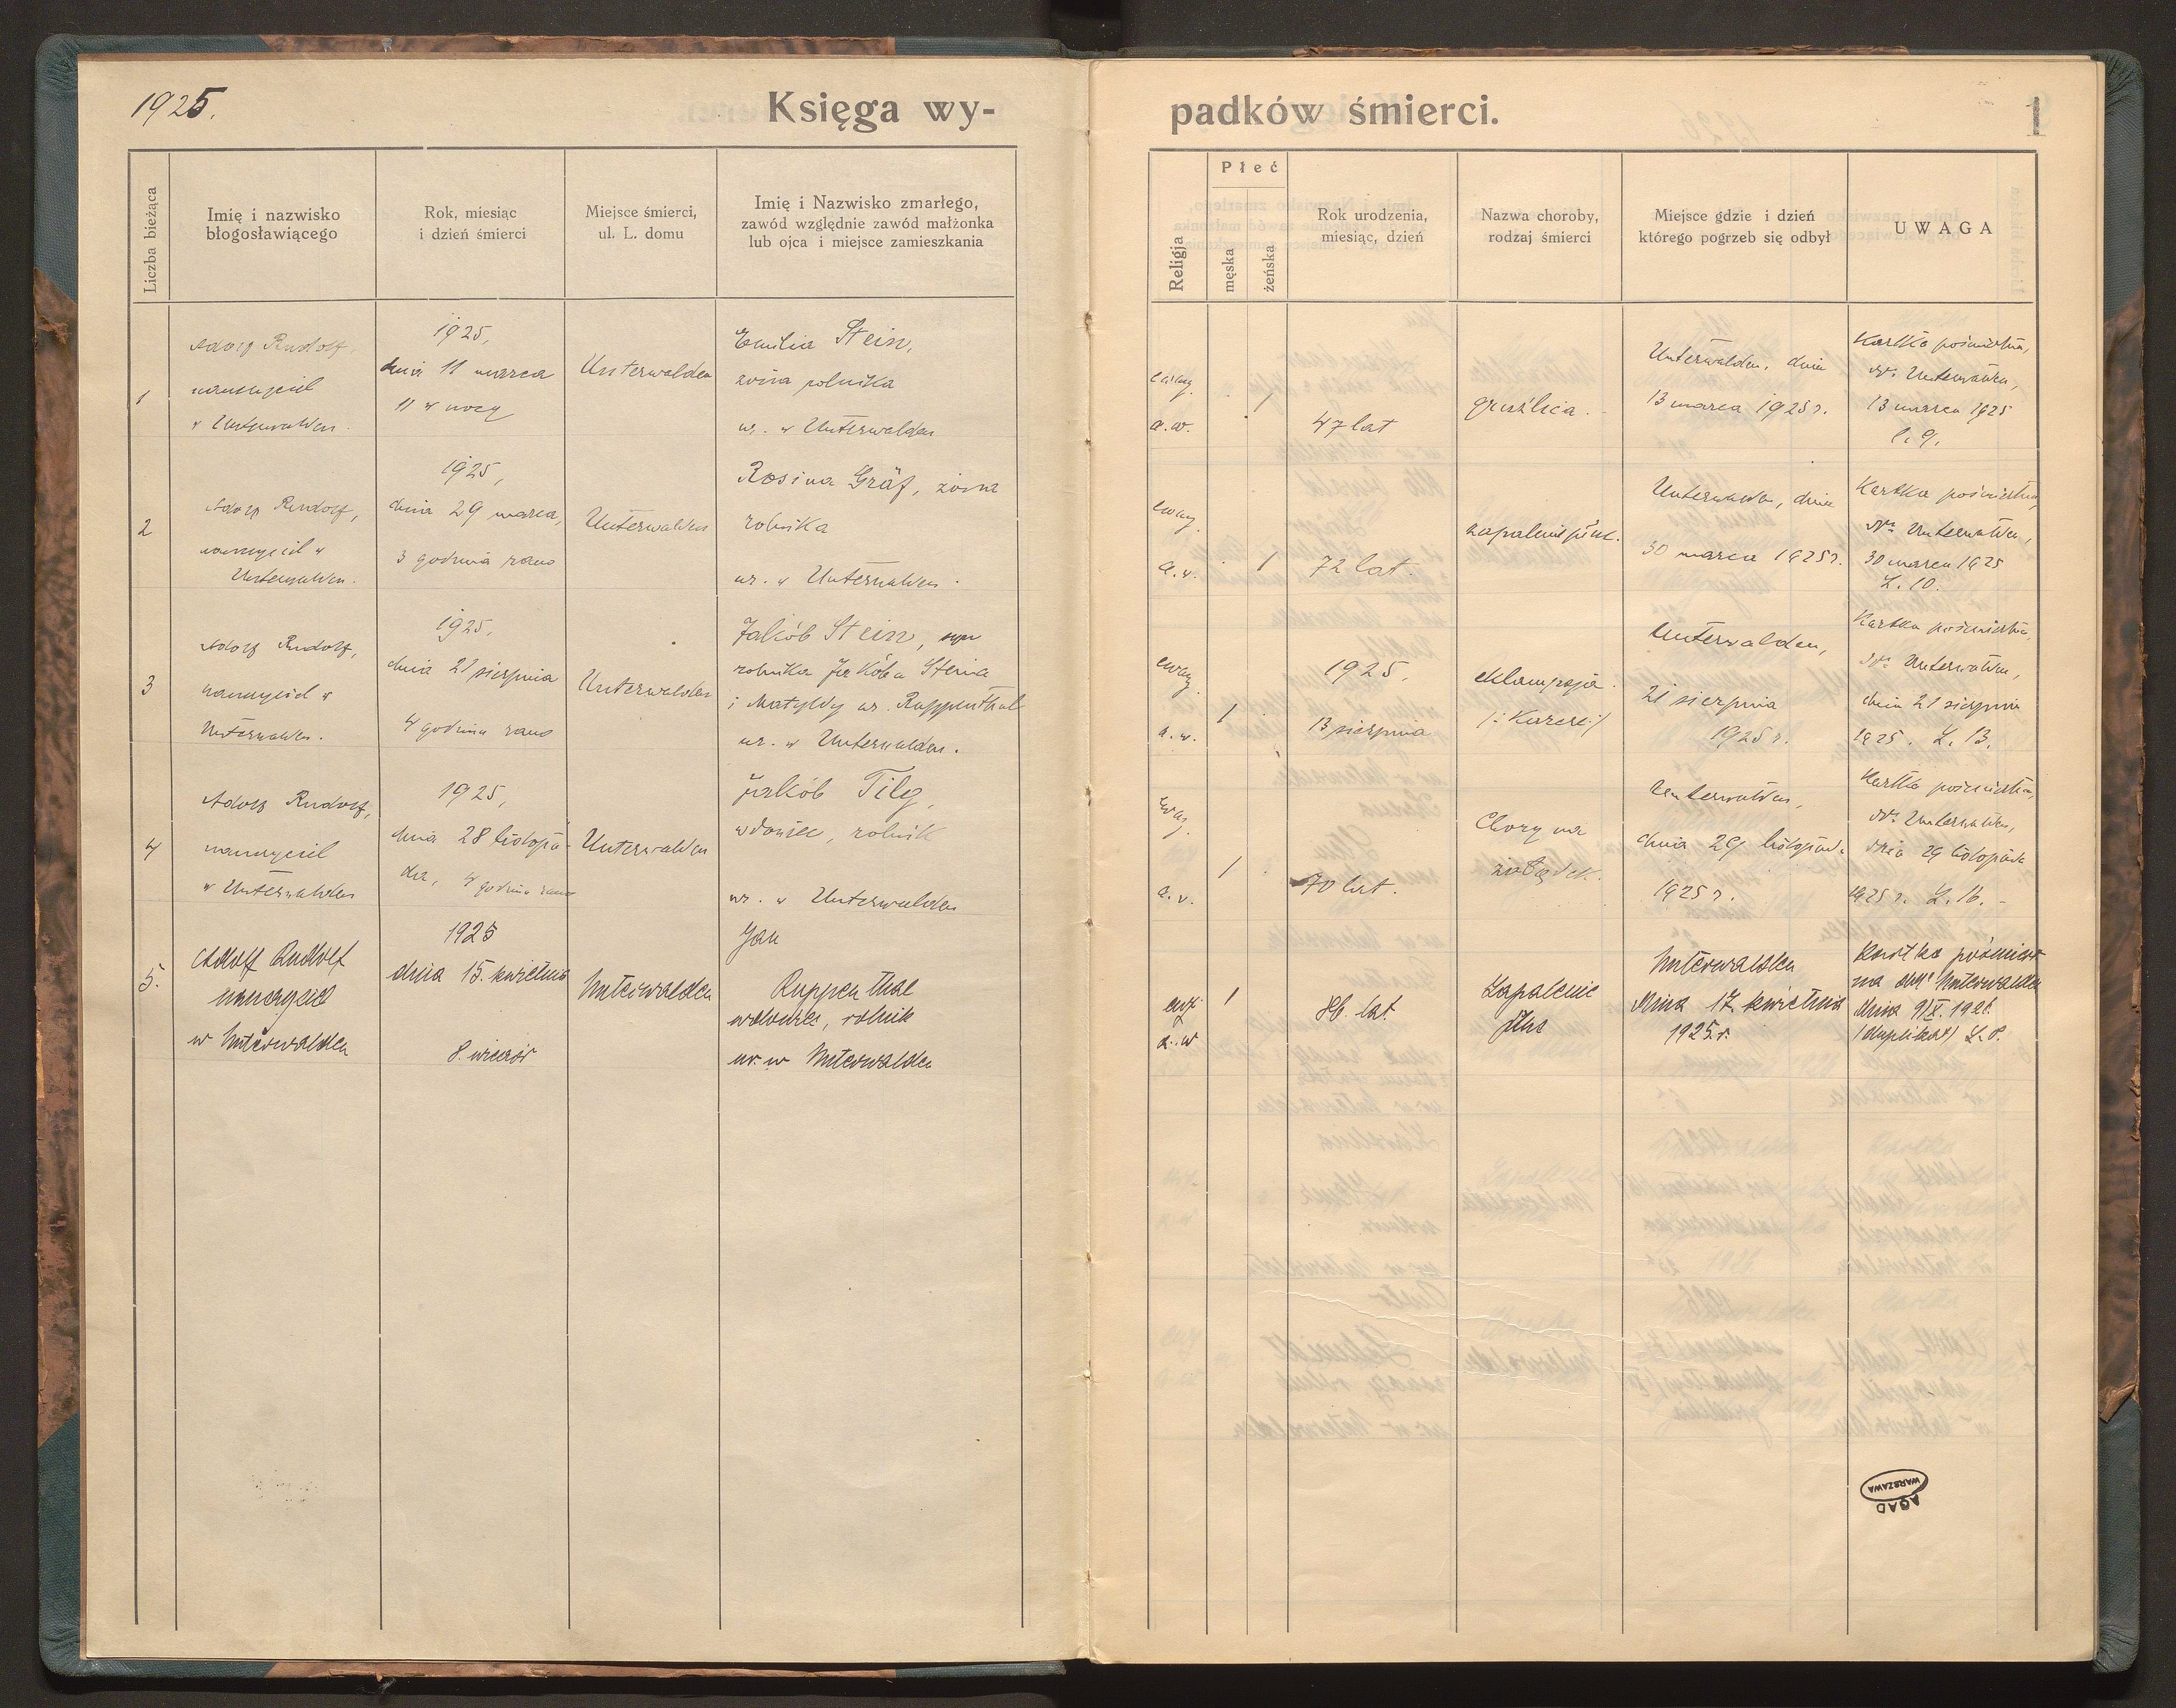 1925.
Księga wy-
padków śmierci.
1
Liczba bieżąca
Imię i nazwisko
błogosławiącego
Rok, miesiąc
i dzień śmierci
Miejsce śmierci,
ul. L. domu
Imię i Nazwisko zmarłego,
zawód względnie zawód małżonka
lub ojca i miejsce zamieszkania
Religja
Płeć
męska
żeńska
Rok urodzenia,
miesiąc, dzień
Nazwa choroby,
rodzaj śmierci
Miejsce gdzie i dzień
którego pogrzeb się odbył
UWAGA
1
Adolf Rudolf,
nauczyciel
w Unterwalden.
1925,
dnia 11 marca
11 w nocy
Unterwalden
Emilia Stein,
żona rolnika
ur. w Unterwalden
ewang.
a. w.
1
47 lat
gruźlica.
Unterwalden, dnia
13 marca 1925 r.
Kartka pośmiertna,
Unterwalden,
13 marca 1925
l. 9.
2
Adolf Rudolf,
nauczyciel w
Unterwalden.
1925,
dnia 29 marca,
3 godzina rano
Unterwalden
Rosina Gräf, żona
rolnika
ur. w Unterwalden.
ewang.
a. w.
1
72 lat.
zapalenie płuc.
Unterwalden, dnia
30 marca 1925 r.
Kartka pośmiertna,
Unterwalden,
30 marca 1925
L. 10.
3
Adolf Rudolf,
nauczyciel w
Unterwalden.
1925,
dnia 21 sierpnia
4 godzina rano
Unterwalden
Jakób Stein, syn
rolnika Jakóba Steina
i Matyldy ur. Ruppenthal
ur. w Unterwalden.
ewang.
a. w.
1
1925.
13 sierpnia
eklampsja.
/: Kurcze :/
Unterwalden,
21 sierpnia
1925 r.
Kartka pośmiertna,
Unterwalden,
dnia 21 sierpnia
1925. L. 13.
4
Adolf Rudolf,
nauczyciel
w Unterwalden
1925,
dnia 28 listopa-
da, 4 godzina rano
Unterwalden
Jakób Tilg,
wdowiec, rolnik
ur. w Unterwalden
ewang.
a. w.
1
70 lat.
Chory na
żołądek.
Unterwalden,
dnia 29 listopada
1925 r.
Kartka pośmiertna,
Unterwalden,
dnia 29 listopada
1925 r. L. 16. -
5.
Adolf Rudolf
nauczyciel
w Unterwalden
1925
dnia 15. kwietnia
8. wieczór
Unterwalden
Jan
Ruppenthal
wdowiec, rolnik
ur. w Unterwalden
ewg.
a. w
1
86. lat
Zapalenie
płuc
Unterwalden
dnia 17. kwietnia
1925 r.
Kartka pośmiert
na Unterwalden
dnia 9/X. 1926.
(duplikat) L. P.
AGAD
WARSZAWA